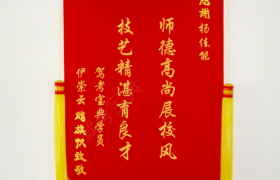 感谢杨佳能
师德高尚展校风
技艺精湛育良才
驾考宝典学员
伊崇云 赠旗 致敬